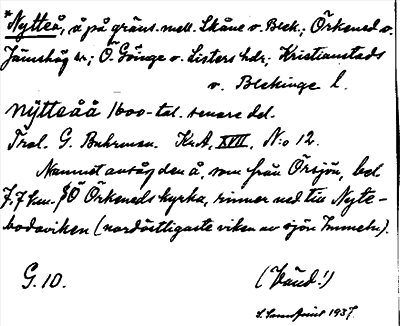 *Nytteå, å på gräns. mell. Skåne o. Blek.; Örkened o.
Jämshög sn; Ö. Göinge o. Listers hdr; Kristianstads
o. Blekinge l.
nÿtteåå 1600-tal. senare del.
Trol. G. Buhrman. KrA. XVII. N:o 12.
Namnet avsåg den å, som från Örsjön, bel.
7,7 km. SÖ Örkeneds kyrka, rinner ned till Nyte-
bodaviken (nordöstligaste viken av sjön Immeln).
G. 10.
(Vänd!)
1937.